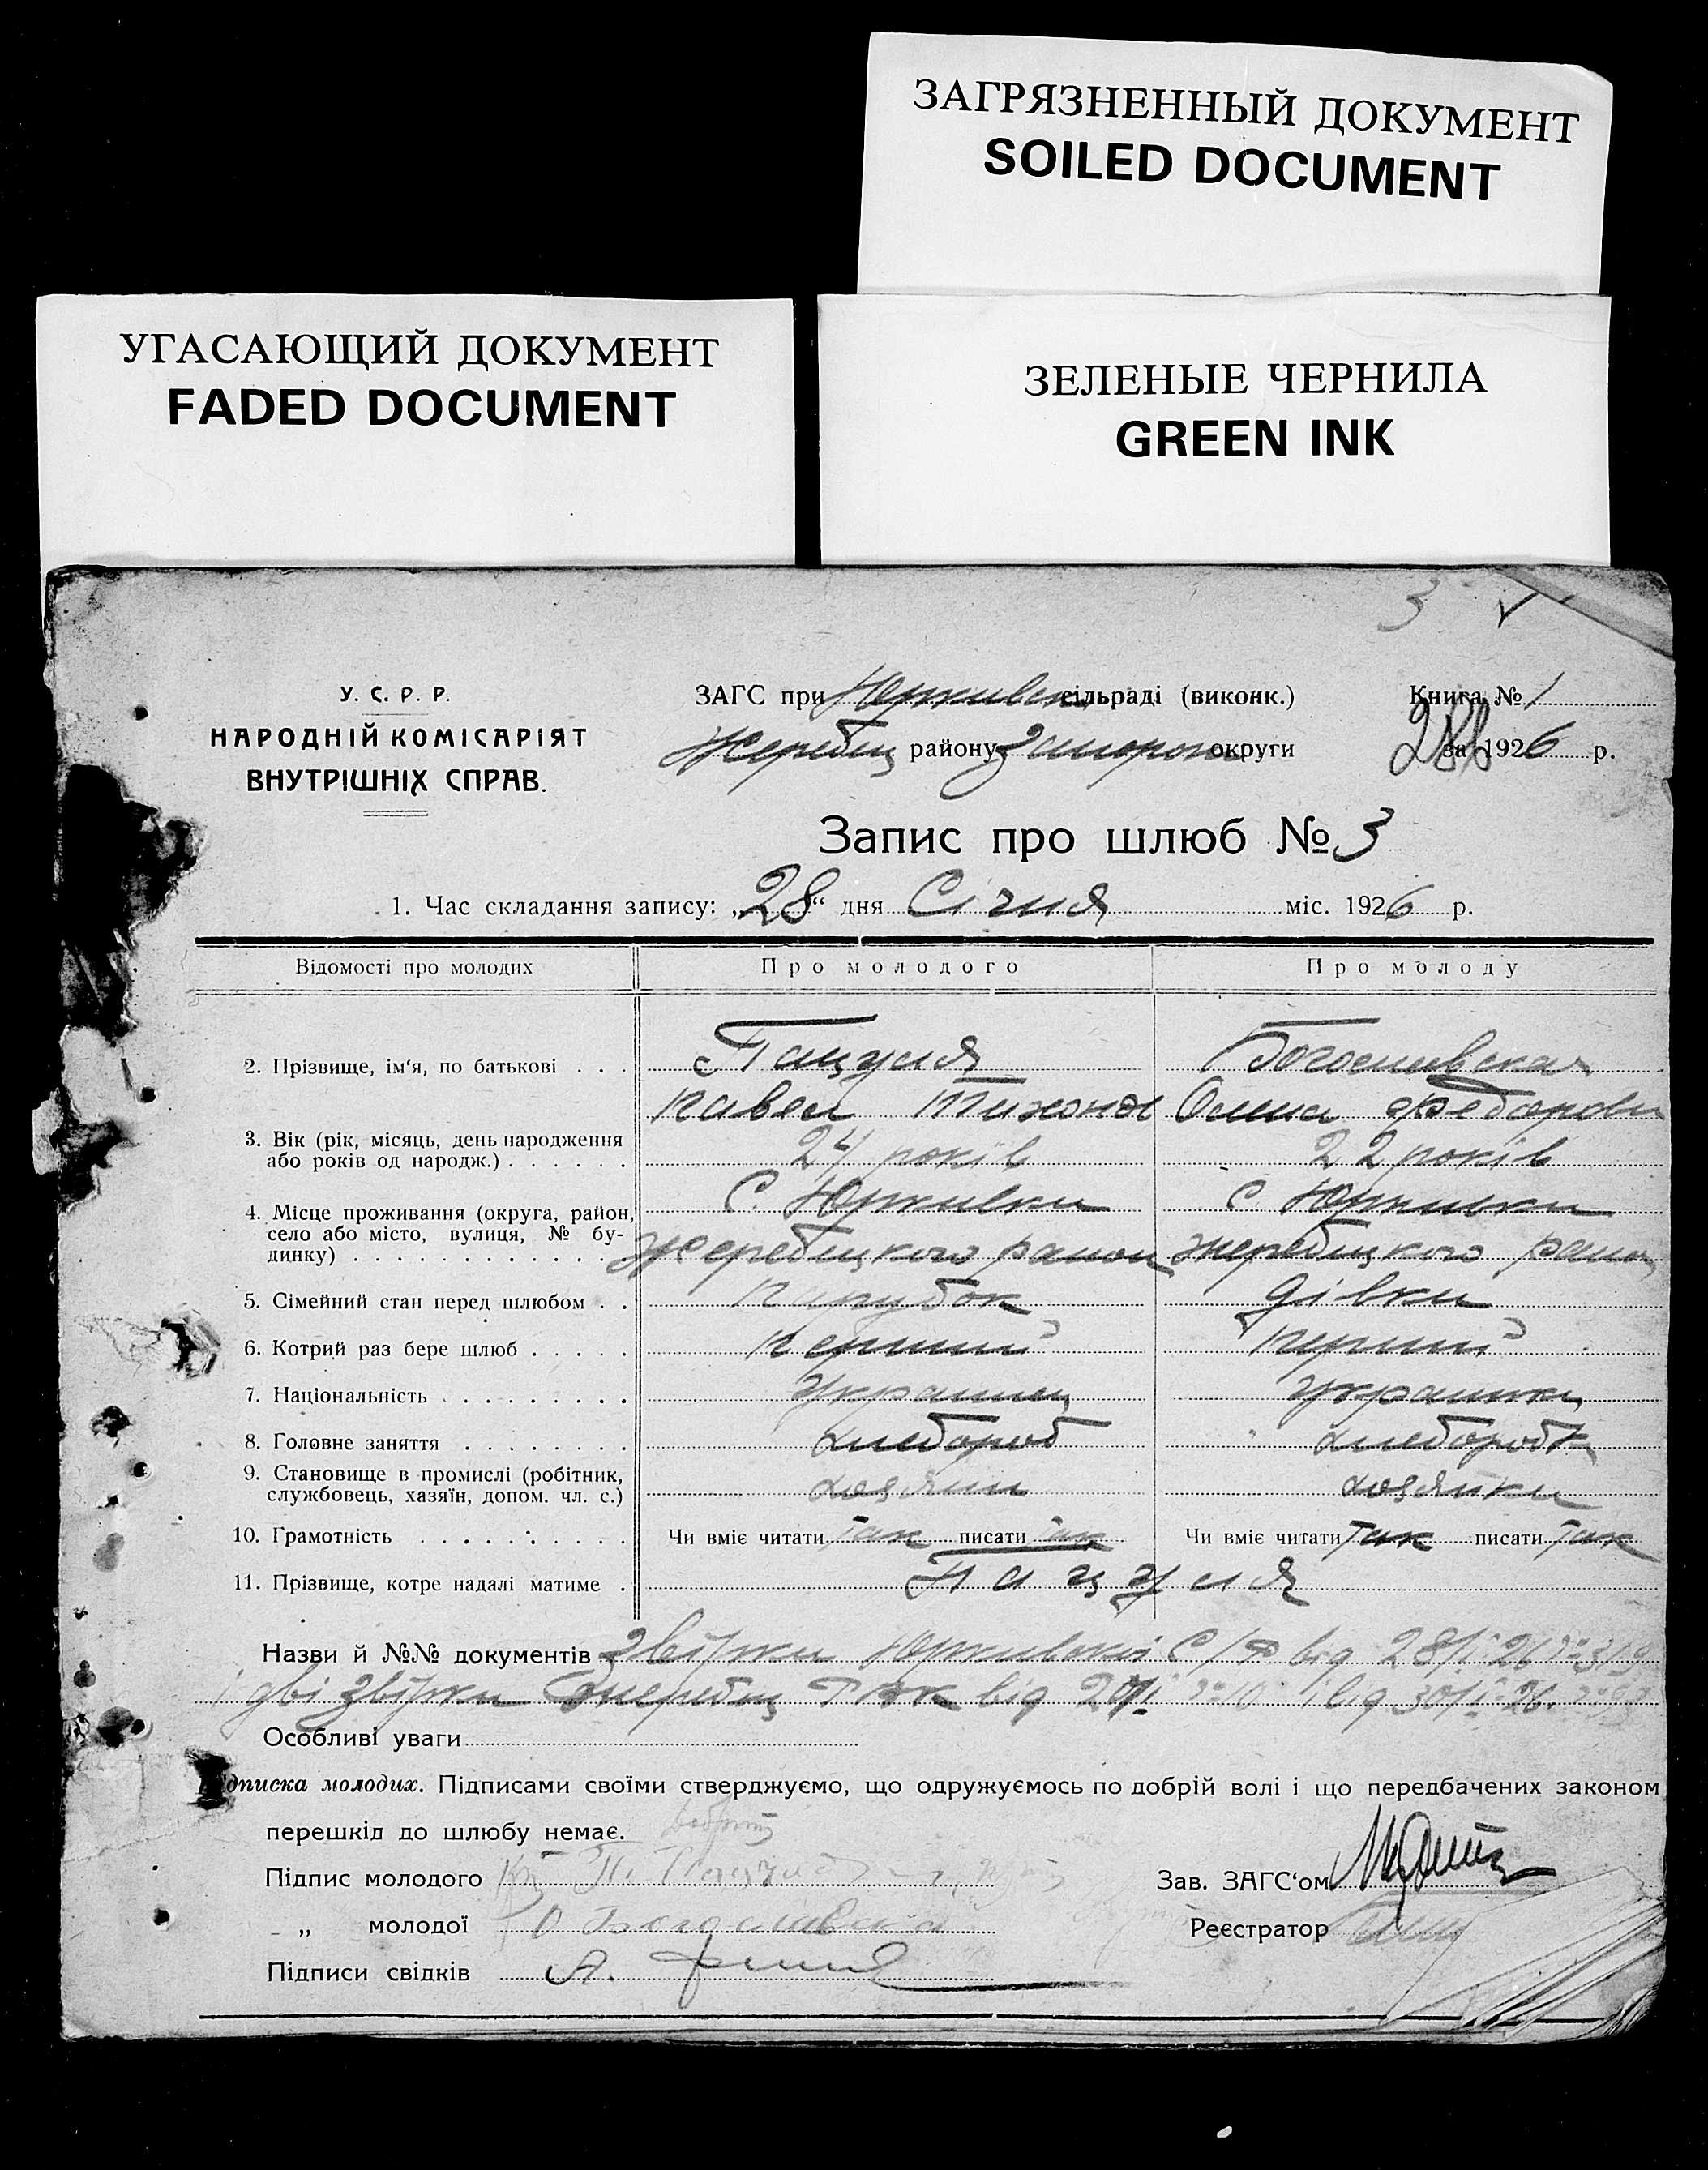 ЗАГРЯЗНЕННЫЙ ДОКУМЕНТ
SOILED DOCUMENT
УГАСАЮЩИЙ ДОКУМЕНТ
FADED DOCUMENT
ЗЕЛЕНЫЕ ЧЕРНИЛА
GREEN INK
3
У. С. Р. Р.
НАРОДНІЙ КОМІСАРІЯТ
ВНУТРІШНІХ СПРАВ.
ЗАГС при Юркивск сільраді (виконк.) Книга № 1
Жеребец району Запорож округи за 1926 р.
Запис про шлюб № 3
1. Час складання запису: „28“ дня Січня міс. 1926 р.
Відомості про молодих Про молодого Про молоду
2. Прізвище, ім‘я, по батькові . . . Пацуля
Павел Олена
3. Вік (рік, місяць, день народження
або років од народж.) . . . . . . 24 років 22 років
4. Місце проживання (округа, район, С. Юркивки С. Юркивки
село або місто, вулиця, № бу-
динку) . . . . . . . . . . . . Жеребецкого району жеребецкого району
5. Сімейний стан перед шлюбом . . Парубок Дівка
6. Котрий раз бере шлюб . . . . . Перший Перший
7. Національність . . . . . . . . . Украинец Украинка
8. Головне заняття . . . . . . . . хлебороб хлеборобк
9. Становище в промислі (робітник,
службовець, хазяїн, допом. чл. с.) хозяин хозяйка
10. Грамотність . . . . . . . . . . Чи вміє читати Так писати Так Чи вміє читати Так писати Так
11. Прізвище, котре надалі матиме . Пацуля
Назви й №№ документів Звістки Юркивської С/р від 28/I 26
і дві звістки Жеребец від і від 30/I 26.
Особливі уваги
дписка молодих. Підписами своїми стверджуємо, що одружуємось по добрій волі і що передбачених законом
перешкід до шлюбу немає.
Підпис молодого П. Пацуля Зав. ЗАГС‘ом
„ молодої О Богославская Реєстратор
Підписи свідків А.